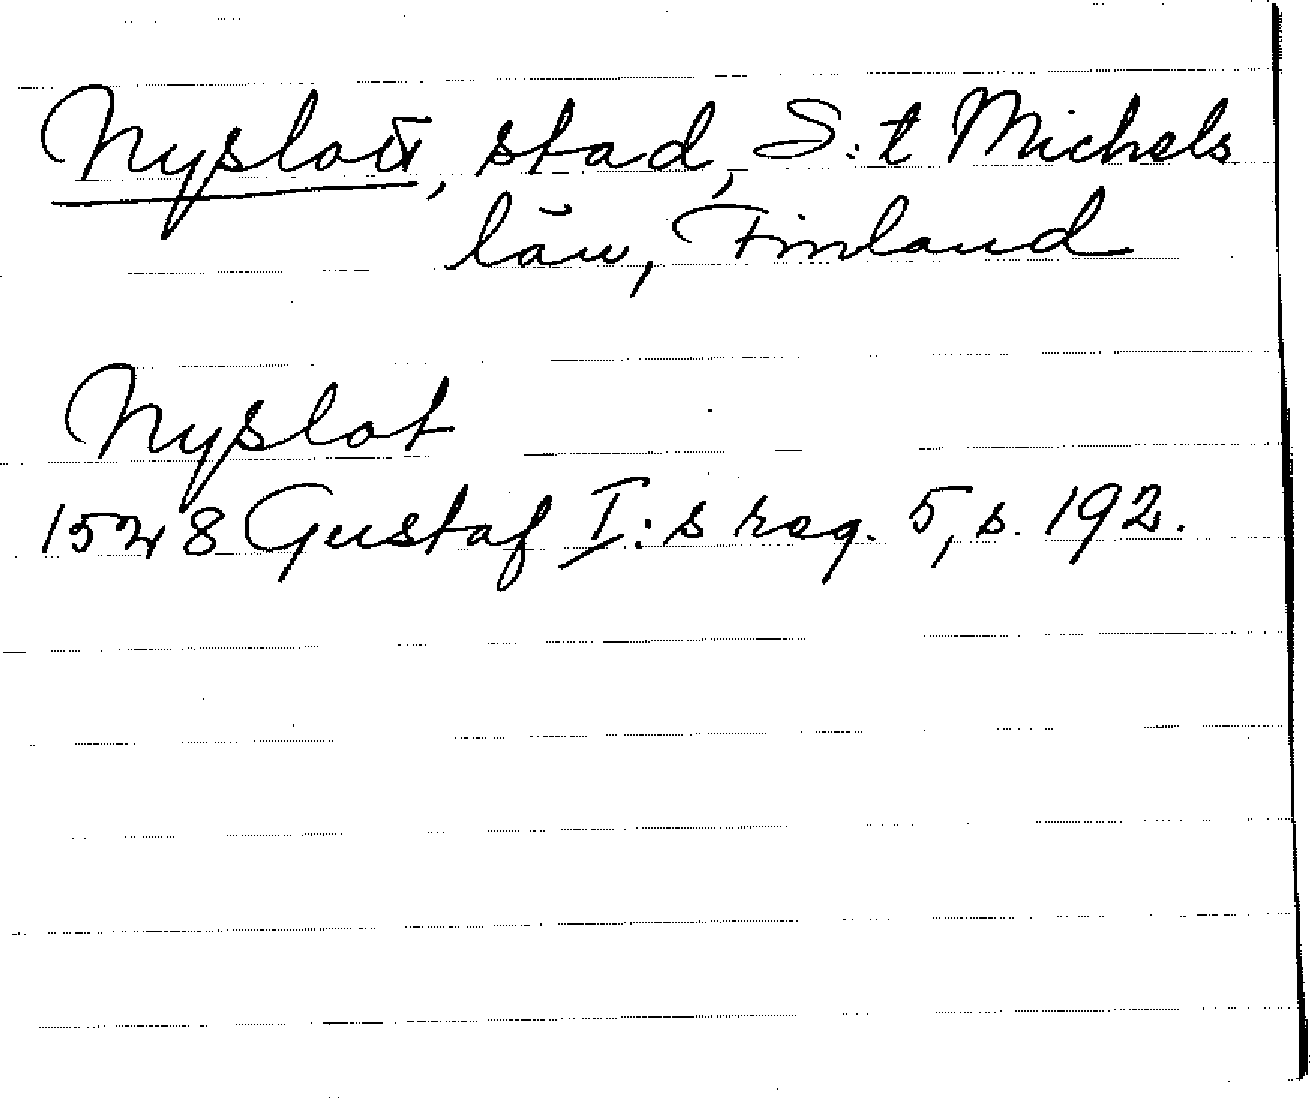 Nyslott, stad, S:t Michels
län, Finland
Nyslot
1528 Gustaf I:s reg. 5, s. 192.